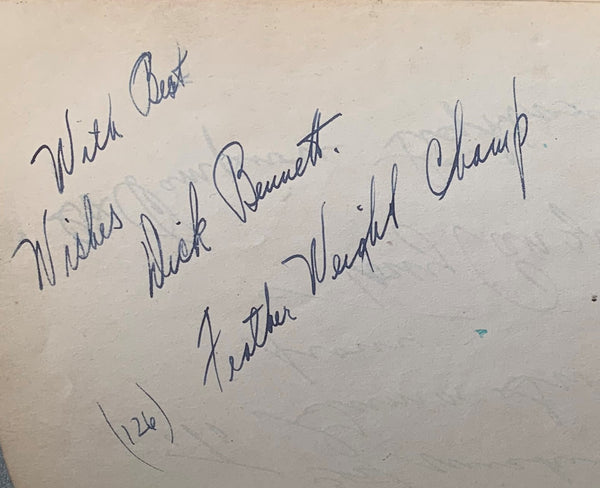 With Best
Wishes
Dick Bennett.
Feather Weight Champ
(126)